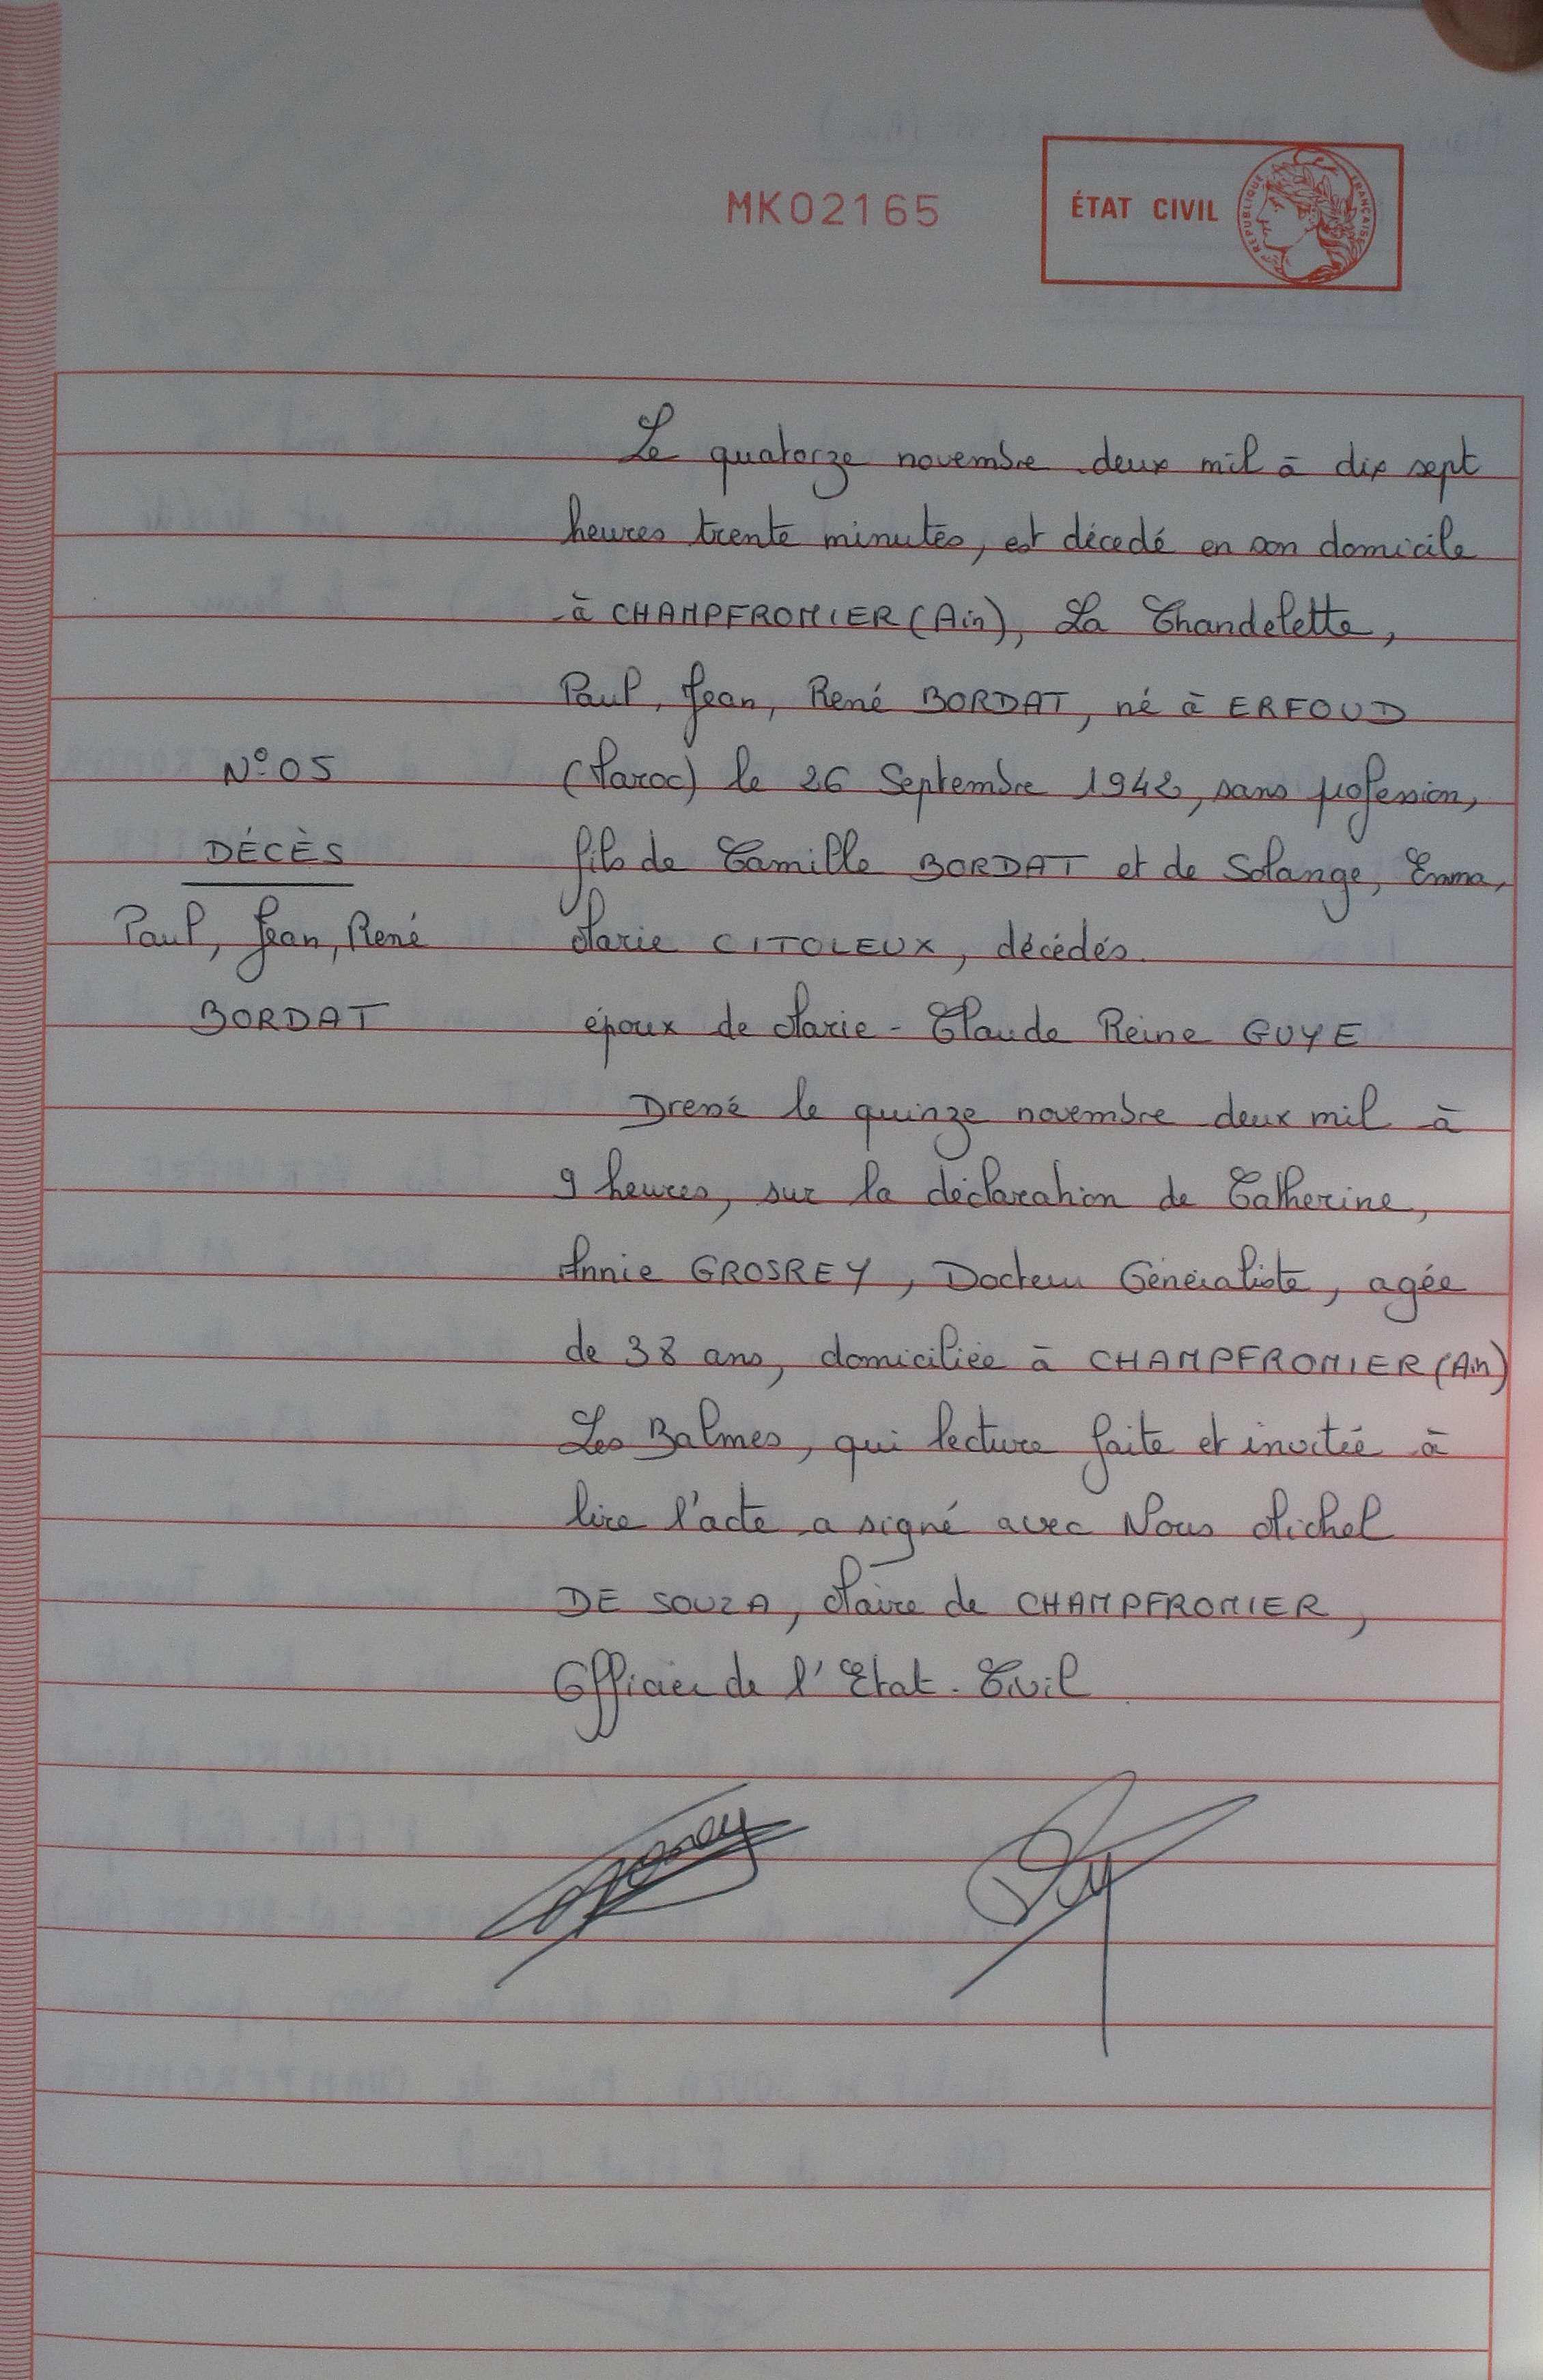 MK02165
ÉTAT CIVIL
RÉPUBLIQUE FRANÇAISE
N° 05
DÉCÈS
Paul, Jean, René
BORDAT
Le quatorze novembre deux mil à dix sept
heures trente minutes, est décedé en son domicile
à CHAMPFROMIER (Ain), La Chandelette,
Paul, Jean, René BORDAT, né à ERFOUD
(Maroc) le 26 Septembre 1942, sans profession,
fils de Camille BORDAT et de Solange, Emma,
Marie CITOLEUX, décédés.
époux de Marie-Claude Reine GUYE
Dressé le quinze novembre deux mil à
9 heures, sur la déclaration de Catherine,
Annie GROSREY, Docteur Généraliste, agée
de 38 ans, domiciliée à CHAMPFROMIER (Ain)
Les Balmes, qui lecture faite et invitée à
lire l'acte a signé avec Nous Michel
DE SOUZA, Maire de CHAMPFROMIER,
Officier de l'Etat-Civil